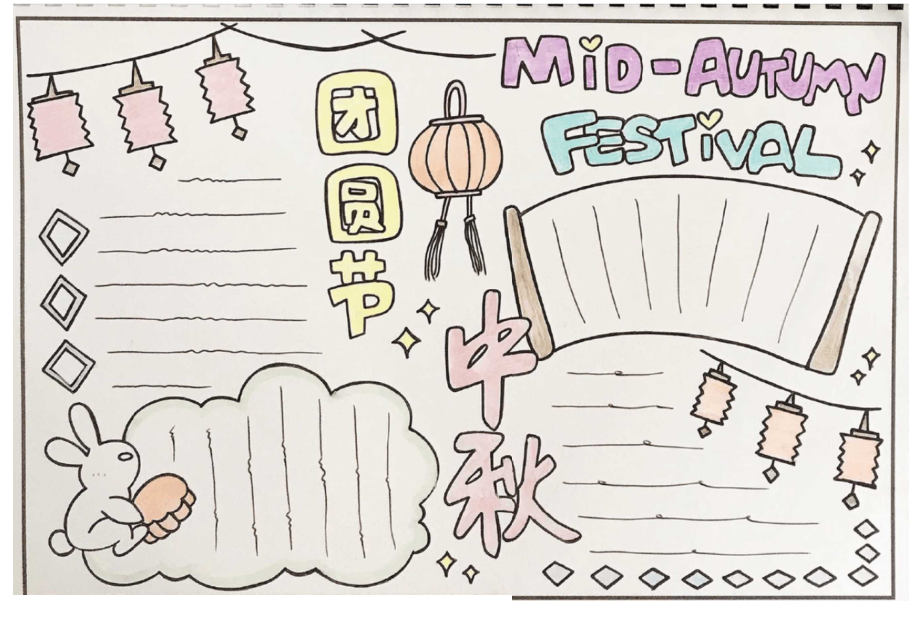 MiD-AUTUMN
FESTiVAL
团圆节
中秋